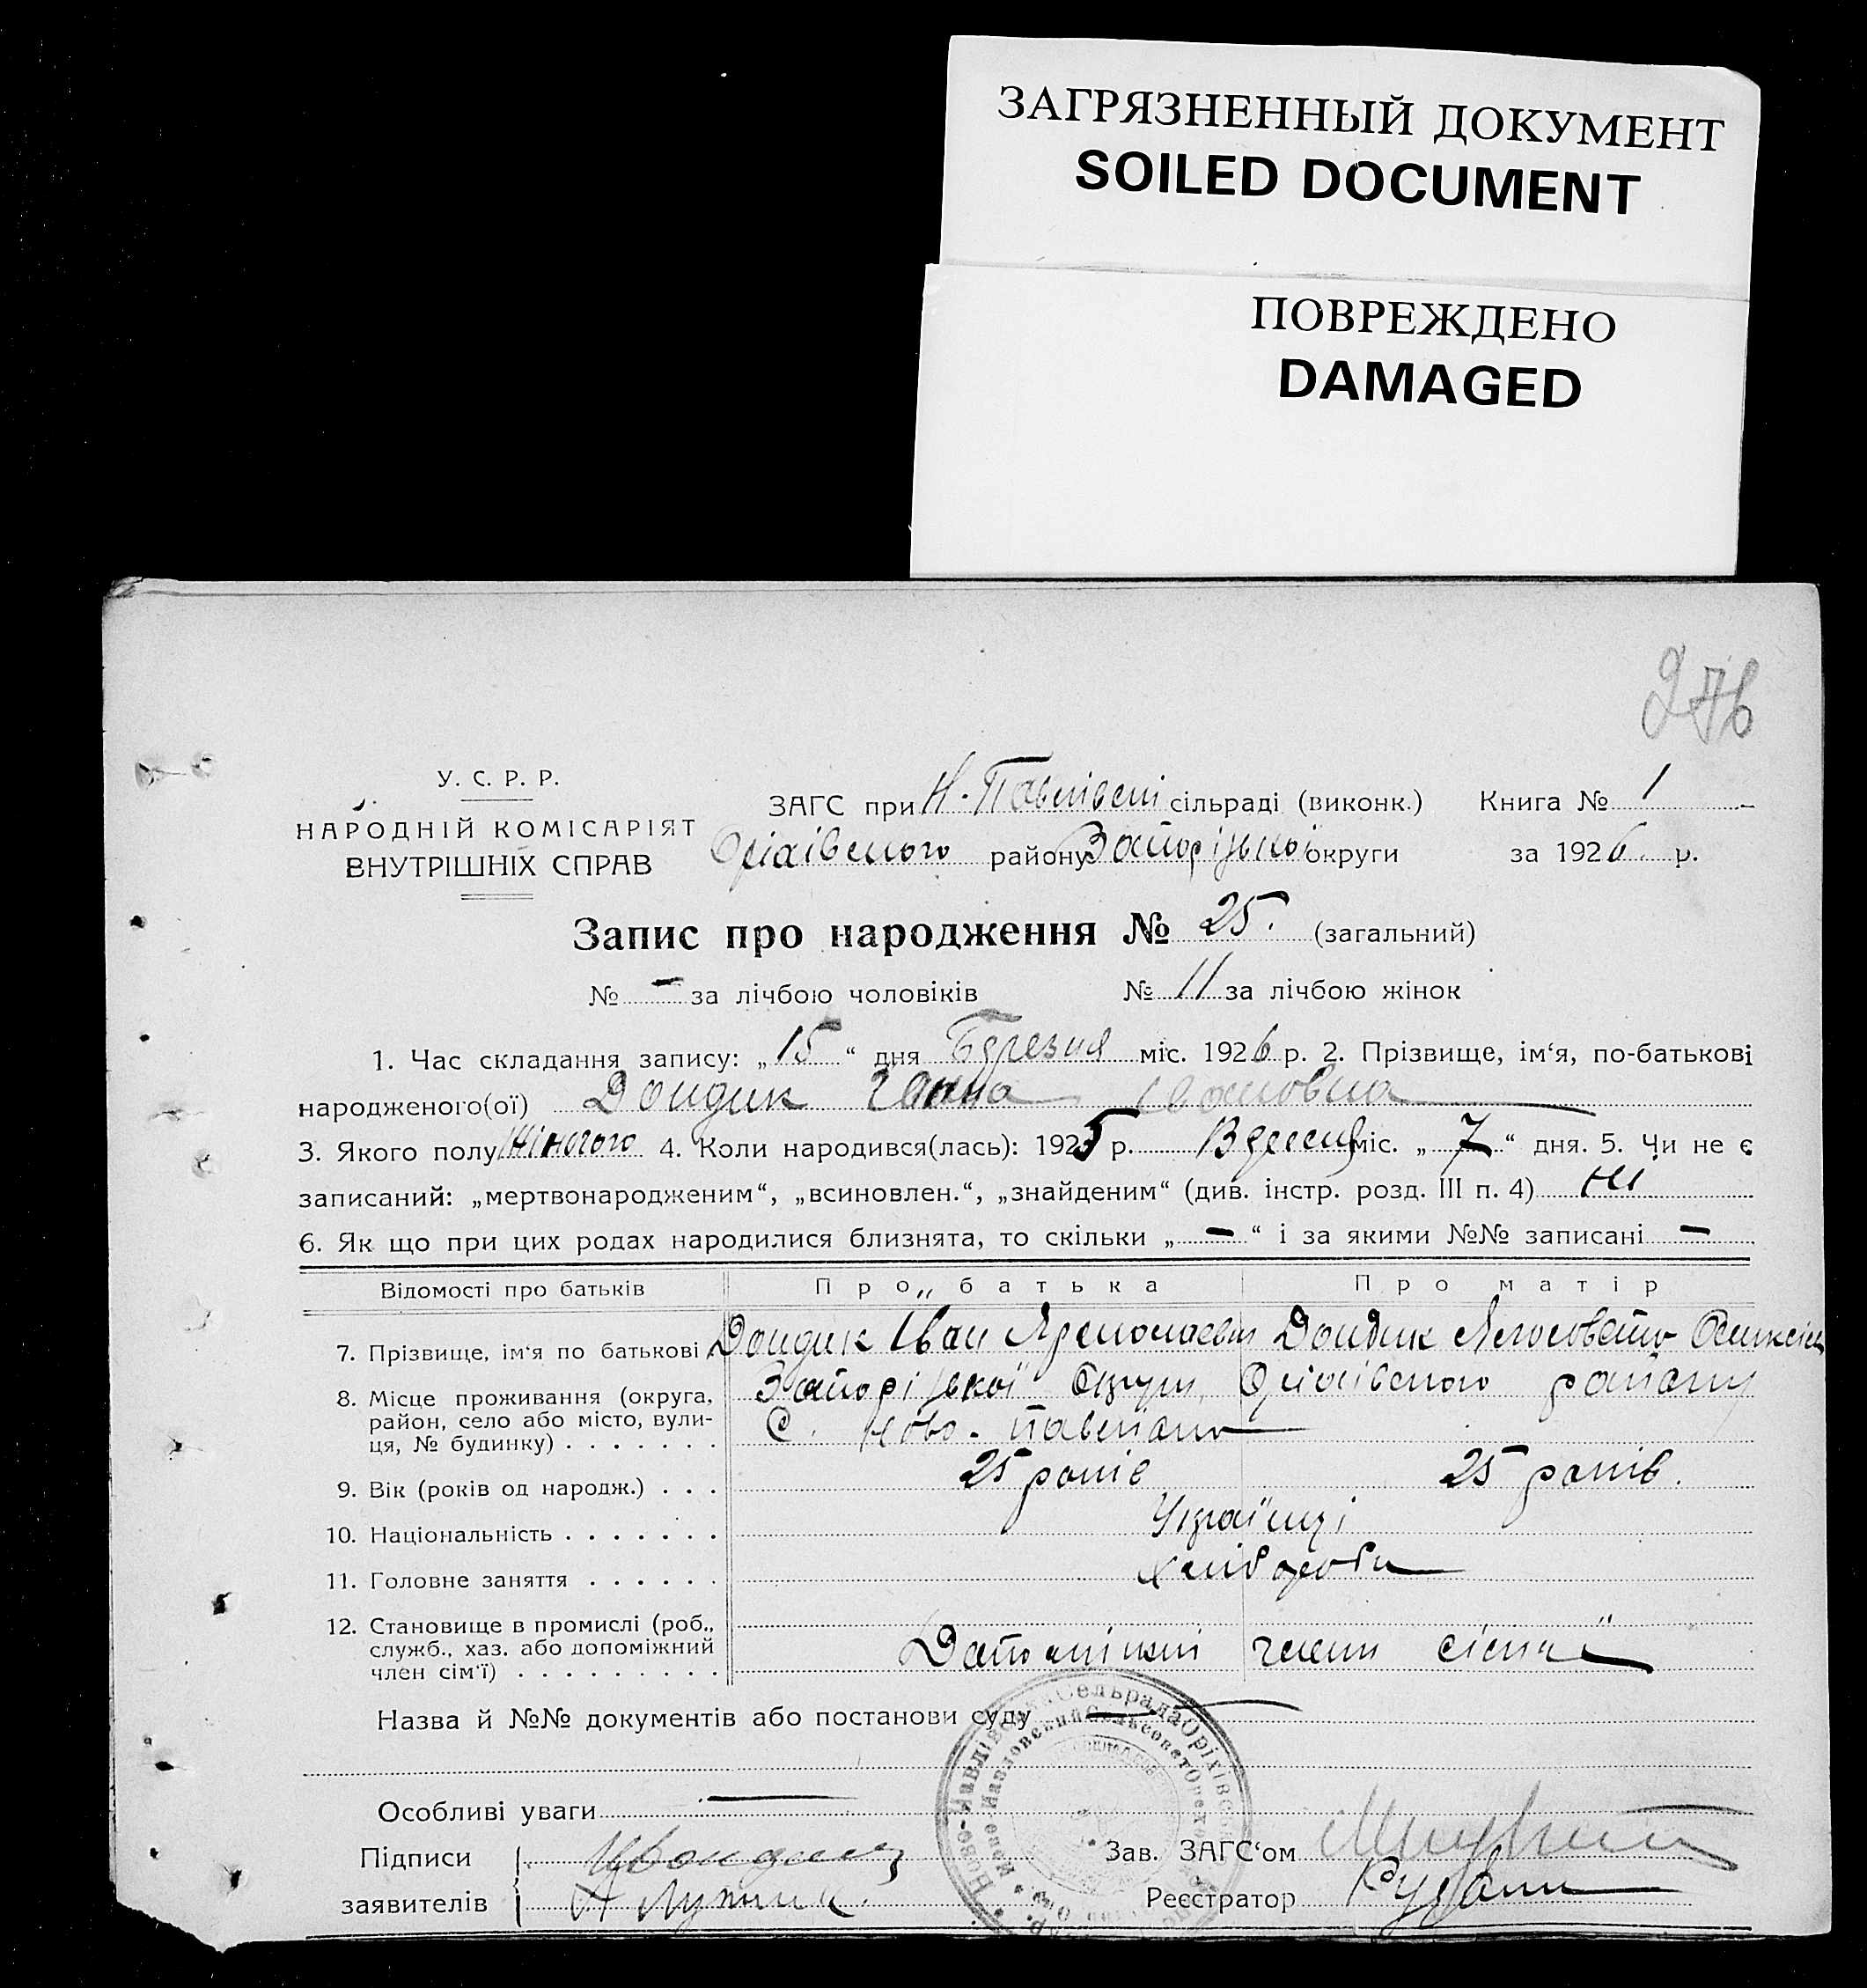 ЗАГРЯЗНЕННЫЙ ДОКУМЕНТ
SOILED DOCUMENT
ПОВРЕЖДЕНО
DAMAGED
276
У. С. Р. Р.
НАРОДНІЙ КОМІСАРІЯТ
ВНУТРІШНІХ СПРАВ
ЗАГС при Н-Павлівські сільраді (виконк.) Книга № 1
Оріхівського району Запоріської округи за 1926 р.
Запис про народження № 25. (загальний)
№ — за лічбою чоловіків № 11 за лічбою жінок
1. Час складання запису: „15“ дня Березня міс. 1926 р. 2. Прізвище, ім‘я, по-батькові
народженого(ої) Дондик Ганна Івановна
3. Якого полу Жіночого 4. Коли народився(лась): 1925 р. Вересня міс. „7“ дня. 5. Чи не є
записаний: „мертвонародженим“, „всиновлен.“, „знайденим“ (див. інстр. розд. III п. 4) Ні
6. Як що при цих родах народилися близнята, то скільки „—“ і за якими №№ записані —
Відомості про батьків Про батька Про матір
7. Прізвище, ім‘я по батькові Дондик Іван Дондик
8. Місце проживання (округа, район, село або місто, вулиця, № будинку) Запорізької Округи, Оріхівського району
С. Ново-Павлівка
9. Вік (років од народж.) 25 років 25 років.
10. Національність Українці
11. Головне заняття Хлібороби
12. Становище в промислі (роб., служб., хаз. або допоміжний член сім‘ї) члени сім'ї
Назва й №№ документів або постанови суду —
Особливі уваги —
Підписи
заявителів
Зав. ЗАГС‘ом
Реєстратор